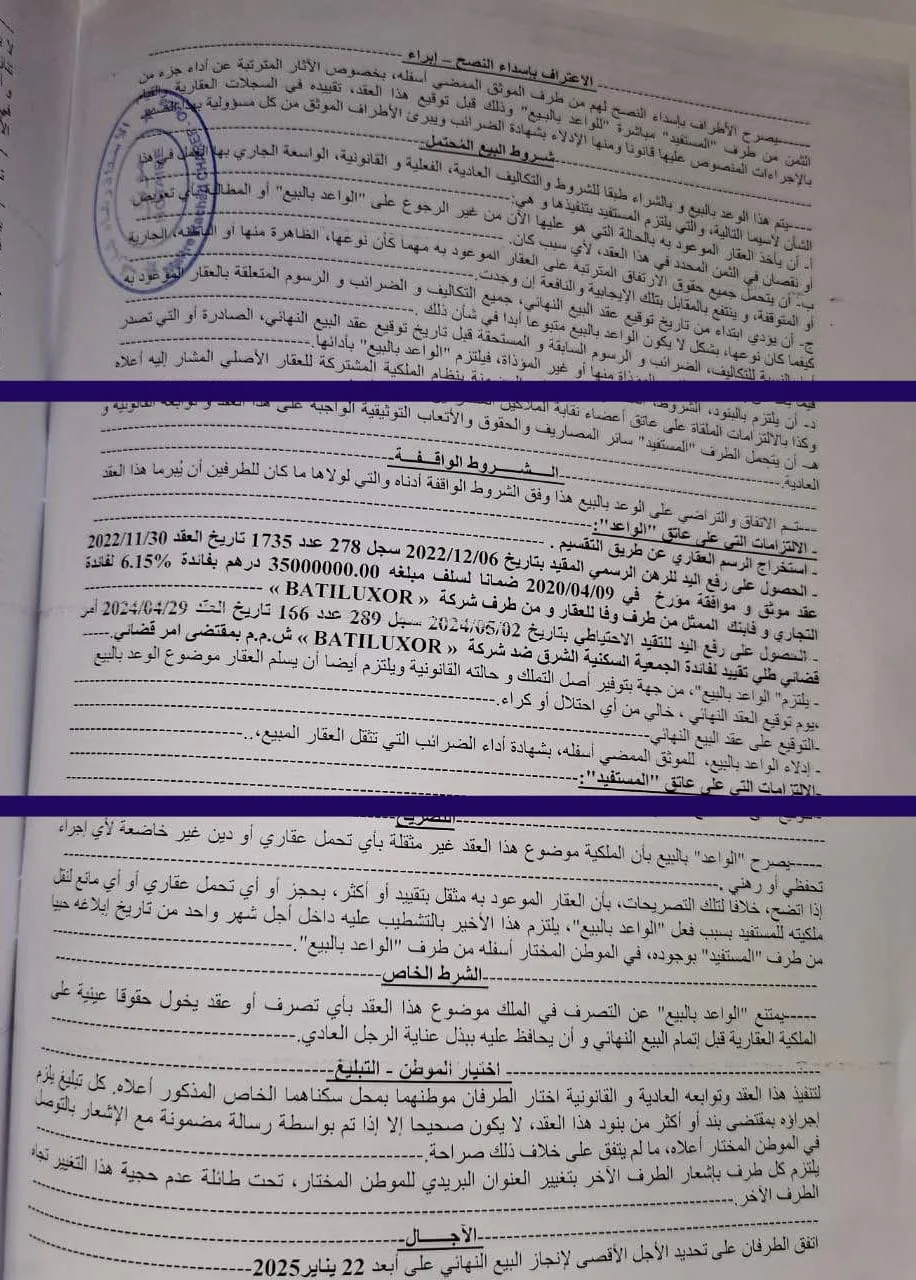 الاعتراف بإسداء النصح – إبراء
-----يصرح الأطراف بإسداء النصح لهم من طرف الموثق الممضي أسفله، بخصوص الآثار المترتبة عن أداء جزء من
الثمن من طرف "المستفيد" مباشرة "للواعد بالبيع" وذلك قبل توقيع هذا العقد، تقييده في السجلات العقارية والقيام
بالإجراءات المنصوص عليها قانونا ومنها الإدلاء بشهادة الضرائب ويبرئ الأطراف الموثق من كل مسؤولية بهذا
شروط البيع المحتمل
-----يتم هذا الوعد بالبيع و بالشراء طبقا للشروط والتكاليف العادية، الفعلية و القانونية، الواسعة الجاري بها العمل في هذا
الشأن لاسيما التالية، والتي يلتزم المستفيد بتنفيذها و هي:
أ- أن يأخذ العقار الموعود به بالحالة التي هو عليها الآن من غير الرجوع على "الواعد بالبيع" أو المطالبة بأي تعويض
أو نقصان في الثمن المحدد في هذا العقد، لأي سبب كان.
ب- أن يتحمل جميع حقوق الارتفاق المترتبة على العقار الموعود به مهما كان نوعها، الظاهرة منها أو الجارية
أو المتوقفة، و ينتفع بالمقابل بتلك الإيجابية والنافعة إن وجدت.
ج- أن يؤدي ابتداء من تاريخ توقيع عقد البيع النهائي، جميع التكاليف و الضرائب و الرسوم المتعلقة بالعقار الموعود به
كيفما كان نوعها، بشكل لا يكون الواعد بالبيع متبوعا أبدا في شأن ذلك .
للتكاليف، الضرائب و الرسوم السابقة و المستحقة قبل تاريخ توقيع عقد البيع النهائي، الصادرة أو التي تصدر
المؤداة منها أو غير المؤداة، فيلتزم "الواعد بالبيع" بأدائها.
د- أن يلتزم بالبنود، الشروط، بنظام الملكية المشتركة للعقار الأصلي المشار إليه أعلاه
وكذا بالالتزامات الملقاة على عاتق أعضاء نقابة الملاكين
هـ- أن يتحمل الطرف "المستفيد" سائر المصاريف والحقوق والأتعاب التوثيقية الواجبة على هذا العقد و توابعه القانونية و
العادية.
الـشــروط الواقـفـة
-----تـم الاتفاق والتراضي على الوعد بالبيع هذا وفق الشروط الواقفة أدناه والتي لولاها ما كان للطرفين أن يُبرما هذا العقد
- الالتزامات التي على عاتق "الواعد":
- استخراج الرسم العقاري عن طريق التقسيم .
- الحصول على رفع اليد للرهن الرسمي المقيد بتاريخ 2022/12/06 سجل 278 عدد 1735 تاريخ العقد 2022/11/30
عقد موثق و موافقة مؤرخ في 2020/04/09 ضمانا لسلف مبلغه 35000000.00 درهم بفائدة 6.15% لفائدة
التجاري و فابنك الممثل من طرف وفا للعقار و من طرف شركة « BATILUXOR »
- الحصول على رفع اليد للتقيد الاحتياطي بتاريخ 2024/05/02 سجل 289 عدد 166 تاريخ العقد 2024/04/29 أمر
قضائي طلي تقييد لفائدة الجمعية السكنية الشرق ضد شركة « BATILUXOR » ش.م.م بمقتضى امر قضائي.
- يلتزم" الواعد بالبيع"، من جهة بتوفير أصل التملك و حالته القانونية ويلتزم أيضا أن يسلم العقار موضوع الوعد بالبيع
،يوم توقيع العقد النهائي ، خالي من أي احتلال أو كراء.
-التوقيع على عقد البيع النهائي
- إدلاء الواعد بالبيع، للموثق الممضي أسفله، بشهادة أداء الضرائب التي تثقل العقار المبيع،..
-الالتزامات التي على عاتق "المستفيد":
التصريح
-----يصرح "الواعد" بالبيع بأن الملكية موضوع هذا العقد غير مثقلة بأي تحمل عقاري أو دين غير خاضعة لأي إجراء
تحفظي أو رهني .
إذا اتضح، خلافا لتلك التصريحات، بأن العقار الموعود به مثقل بتقييد أو أكثر، بحجز أو أي تحمل عقاري أو أي مانع لنقل
ملكيته للمستفيد بسبب فعل "الواعد بالبيع"، يلتزم هذا الأخير بالتشطيب عليه داخل أجل شهر واحد من تاريخ إبلاغه حبيا
من طرف "المستفيد" بوجوده، في الموطن المختار أسفله من طرف "الواعد بالبيع".
الشرط الخاص
-----يمتنع "الواعد بالبيع" عن التصرف في الملك موضوع هذا العقد بأي تصرف أو عقد يخول حقوقا عينية على
الملكية العقارية قبل إتمام البيع النهائي و أن يحافظ عليه ببذل عناية الرجل العادي.
اختيار الموطن - التبليغ
لتنفيذ هذا العقد وتوابعه العادية و القانونية اختار الطرفان موطنهما بمحل سكناهما الخاص المذكور أعلاه. كل تبليغ يلزم
إجراؤه بمقتضى بند أو أكثر من بنود هذا العقد، لا يكون صحيحا إلا إذا تم بواسطة رسالة مضمونة مع الإشعار بالتوصل
في الموطن المختار أعلاه، ما لم يتفق على خلاف ذلك صراحة.
يلتزم كل طرف بإشعار الطرف الآخر بتغيير العنوان البريدي للموطن المختار، تحت طائلة عدم حجية هذا التغيير تجاه
الطرف الآخر.
الآجال
اتفق الطرفان على تحديد الأجل الأقصى لإنجاز البيع النهائي على أبعد 22 يناير2025